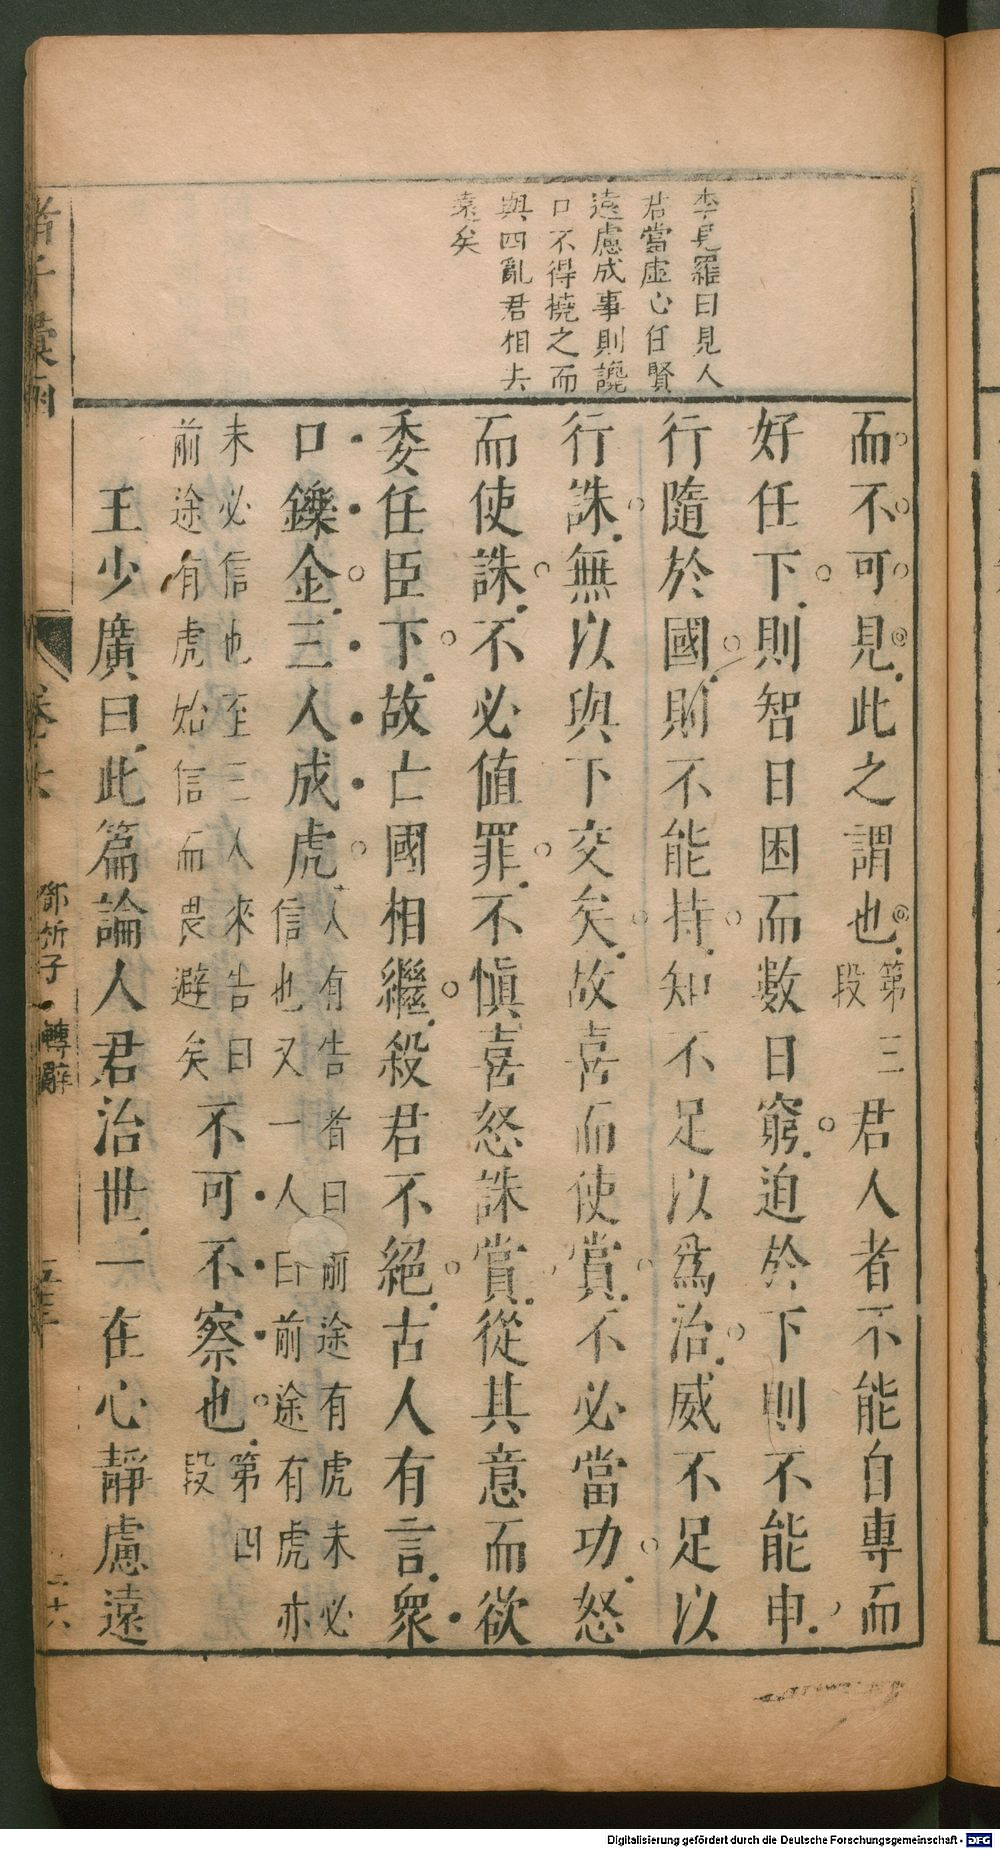 李見羅曰見人
君當虛心任賢
遠慮成事則讒
口不得撓之而
與四亂君相去
遠矣
而不可見此之謂也第三段君人者不能自專而
好任下則智日困而數日窮迫於下則不能申
行隨於國則不能持知不足以爲治威不足以
行誅無以與下交矣故喜而使賞不必當功怒
而使誅不必値罪不愼喜怒誅賞從其意而欲
委任臣下故亡國相繼殺君不絕古人有言衆
口鑠金三人成虎人有告者曰前途有虎未必信也又一人曰前途有虎亦
未必信也至三人來告曰前途有虎始信而畏避矣不可不察也第四段
王少廣曰此篇論人君治世一在心靜慮遠
諸子彙函
卷六
鄧析子 轉辭